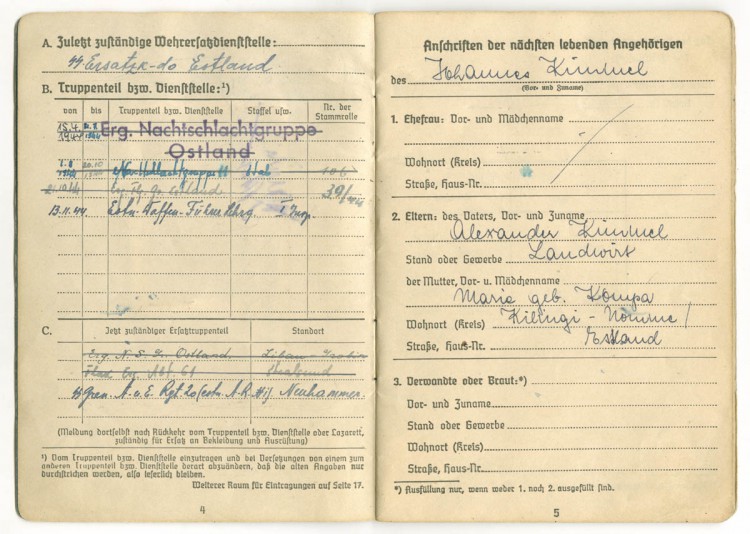 A. Zuletzt zuständige Wehrersatzdienststelle:
SS Ersatzk-do Estland.
B. Truppenteil bzw. Dienststelle:¹)
von bis Truppenteil bzw. Dienststelle Staffel usw. Nr. der Stammrolle
Erg. Nachtschlachtgruppe
Ostland
Nachtschlachtgruppe 11 106
21.10.44 Estland 39/
13.11.44 Estn. Waffen-
C. Jetzt zuständiger Ersatztruppenteil Standort
Erg. N. S. G. Ostland. Libau-
Stralsund
SS Gren. A. u. E. Rgt. 20 (estn. Neuhammer.
(Meldung dortselbst nach Rückkehr vom Truppenteil bzw. Dienststelle oder Lazarett,
zuständig für Ersatz an Bekleidung und Ausrüstung)
¹) Vom Truppenteil bzw. Dienststelle einzutragen und bei Versetzungen von einem zum
anderen Truppenteil bzw. Dienststelle derart abzuändern, daß die alten Angaben nur
durchstrichen werden, also leserlich bleiben.
Weiterer Raum für Eintragungen auf Seite 17.
4
Anschriften der nächsten lebenden Angehörigen
des Johannes Kimmel
(Vor- und Zuname)
1. Ehefrau: Vor- und Mädchenname
Wohnort (Kreis)
Straße, Haus-Nr.
2. Eltern: des Vaters, Vor- und Zuname
Alexander Kimmel
Stand oder Gewerbe Landwirt
der Mutter, Vor- u. Mädchenname
Maria geb. Kompa
Wohnort (Kreis) Kilingi-Nõmme/
Straße, Haus-Nr. Estland
3. Verwandte oder Braut:*)
Vor- und Zuname
Stand oder Gewerbe
Wohnort (Kreis)
Straße, Haus-Nr.
*) Ausfüllung nur, wenn weder 1. noch 2. ausgefüllt sind.
5